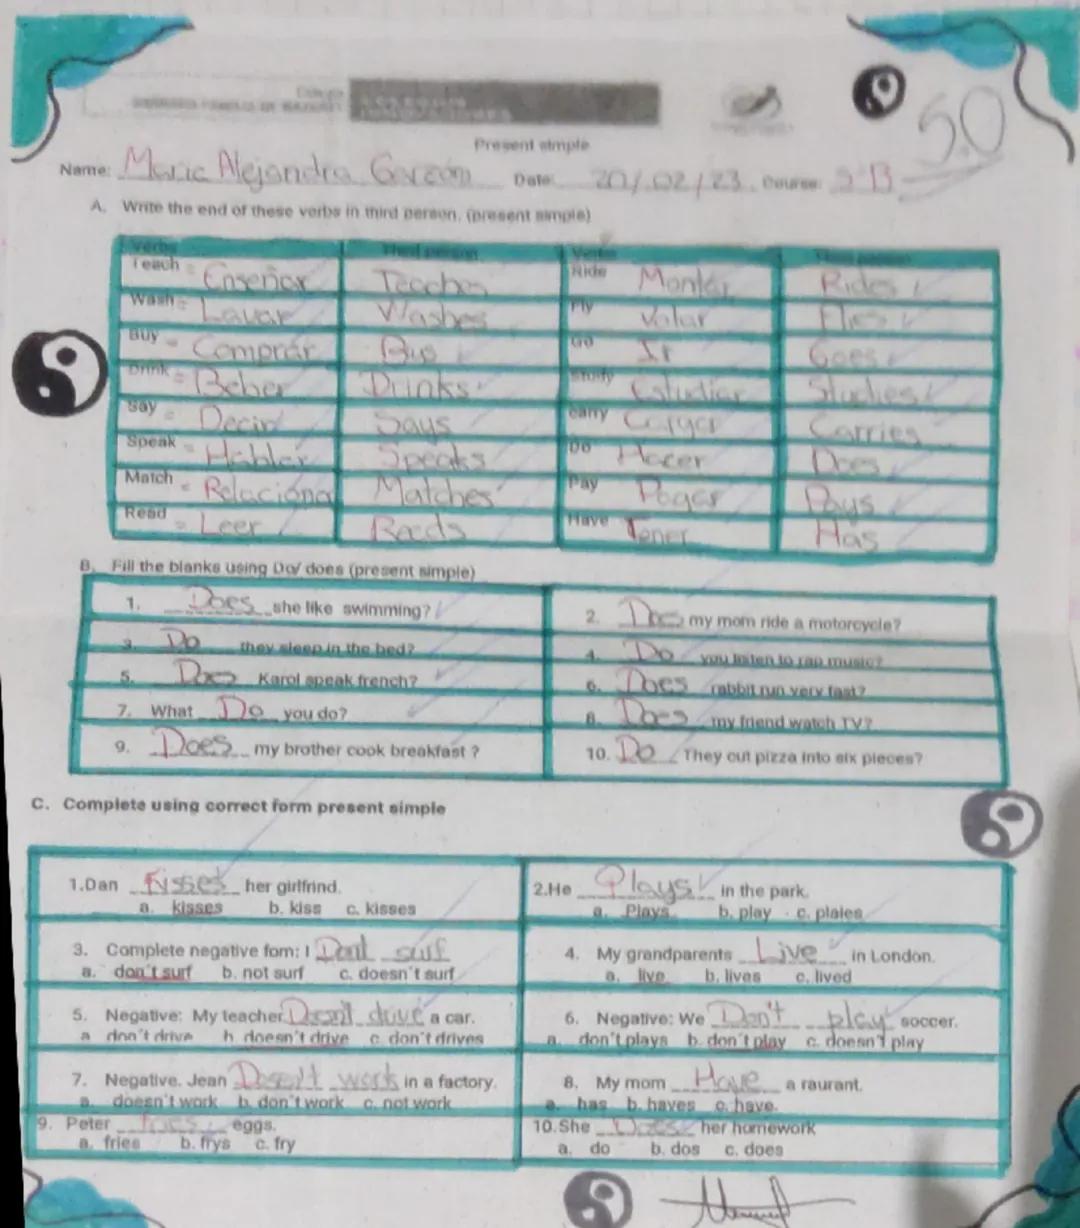 Present simple
5.0
Name: Maria Alejandra Garzón Date: 20/02/23 Course:
A. Write the end of these verbs in third person. (present simple)
Verbs Third person Verbs
Teach = Enseñar Teaches Ride Montar Rides
Wash = Lavar Washes Fly Volar Flies
Buy = Comprar Go Ir Goes
Drink = Beber Drinks Study Estudiar Studies
Say = Decir Says carry Cargar Carries
Speak = Hablar Speaks Do Hacer Does
Match = Relacionar Matches Pay Pagar Pays
Read = Leer Reads Have Tener Has
B. Fill the blanks using Do/ does (present simple)
1. Does she like swimming? 2. Does my mom ride a motorcycle?
3. Do they sleep in the bed? 4. Do you listen to rap music?
5. Does Karol speak french? 6. Does rabbit run very fast?
7. What Do you do? 8. Does my friend watch TV?
9. Does my brother cook breakfast ? 10. Do They cut pizza into six pieces?
C. Complete using correct form present simple
1.Dan Kisses her girlfrind. 2.He Plays in the park.
a. kisses b. kiss c. kisses a. Plays b. play c. plaies
3. Complete negative fom: I Dont surf 4. My grandparents Live in London.
a. don't surf b. not surf c. doesn't surf a. live b. lives c. lived
5. Negative: My teacher Doesn't drive a car. 6. Negative: We Don't play soccer.
a don't drive b. doesn't drive c. don't drives a. don't plays b. don't play c. doesn't play
7. Negative. Jean work in a factory. 8. My mom Have a raurant.
a. doesn't work b. don't work c. not work a. has b. haves c. have.
9. Peter fries eggs. 10.She Does her homework
a. fries b. frys c. fry a. do b. dos c. does